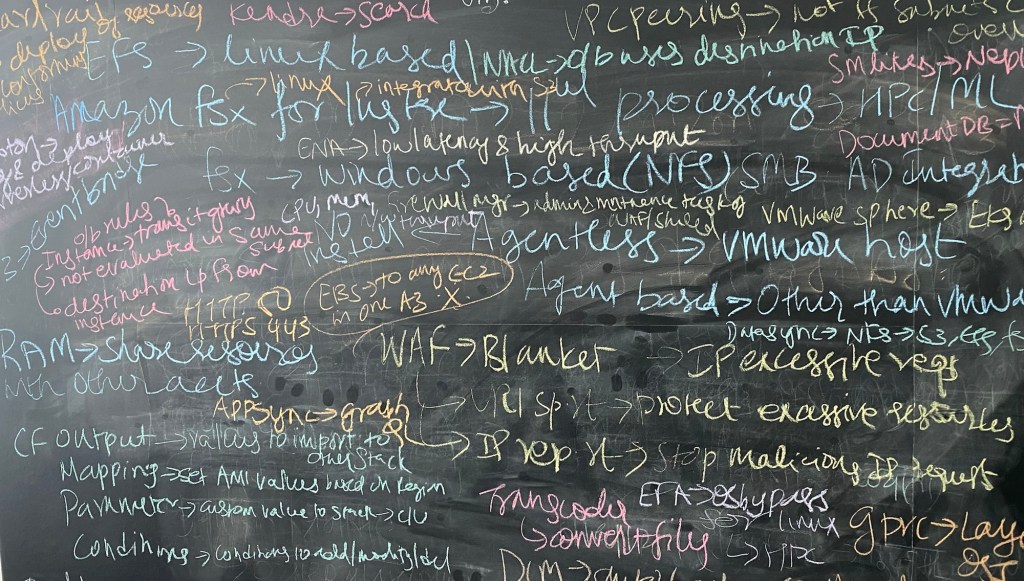 Kendra → Search
VPC peering → not if subnets
deploy of
EFS → linux based / NACL → o/b bases destination IP
→ linux → integrates with S3
Amazon fsx for lustre → ||el processing → HPC/ML
SM lites → Nept
ENA → low latency & high thruput
Document DB =
& deploy
container
fsx → windows based (NFS) SMB AD integrat
CPU, mem,
agent
firewall mgr → admin & mntnence task of
WAF/Shield
VMware sphere → EKS
o/b rules
Instance → transit gway
→ not evaluated in same
subnet
→ destination ip from
instance
install ← Agentless → VMware host
HTTP 80
HTTPS 443
EBS → to any EC2
in one AZ X.
Agent based → Other than VMwa
Datasync → NFS → S3, EFS, f
RAM → share resources
with other accts
WAF → Blanket → IP excessive reqs
→ URI sp rt → protect excessive resources
→ IP rep rt → Stop malicious IP request
APPSync → graph
CF output → values to import to
other stack
Mapping → set AMI values based on Region
Parameter → custom value to stack → c/u
Conditions → conditions to add/modify/del
Transcoder
→ convert files
EFA → OS bypass
for linux
→ HPC
gprc → Lay
DLM →